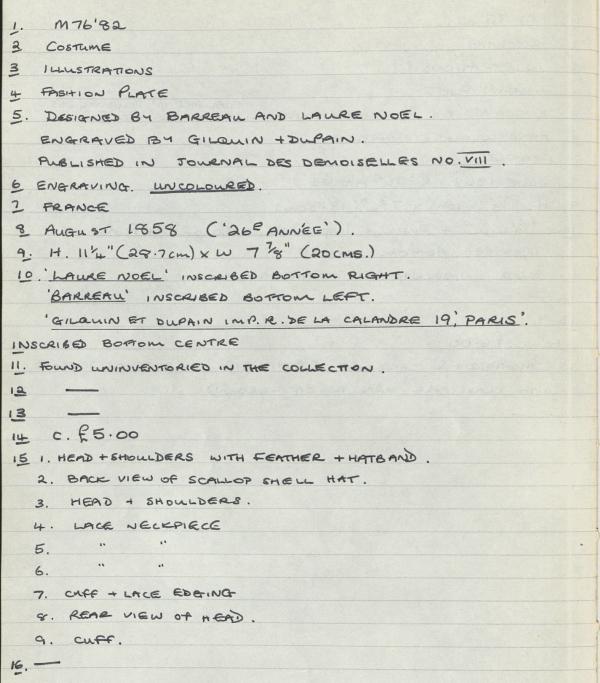 1. M76'82
2 COSTUME
3 ILLUSTRATIONS
4 FASHION PLATE
5. DESIGNED BY BARREAU AND LAURE NOEL.
ENGRAVED BY GILQUIN + DUPAIN.
PUBLISHED IN JOURNAL DES DEMOISELLES NO. VIII.
6 ENGRAVING. UNCOLOURED.
7 FRANCE
8 AUGUST 1858 ('26E ANNÉE').
9. H. 11 1/4" (28.7cm) x W 7 7/8" (20CMS.)
10. 'LAURE NOEL' INSCRIBED BOTTOM RIGHT.
'BARREAU' INSCRIBED BOTTOM LEFT.
'GILQUIN ET DUPAIN IMP. R. DE LA CALANDRE 19, PARIS'.
INSCRIBED BOTTOM CENTRE
11. FOUND UNINVENTORIED IN THE COLLECTION.
12 —
13 —
14 C. £5.00
15 1. HEAD + SHOULDERS WITH FEATHER + HATBAND.
2. BACK VIEW OF SCALLOP SHELL HAT.
3. HEAD + SHOULDERS.
4. LACE NECKPIECE
5. " "
6. " "
7. CUFF + LACE EDGING
8. REAR VIEW OF HEAD.
9. CUFF.
16. —